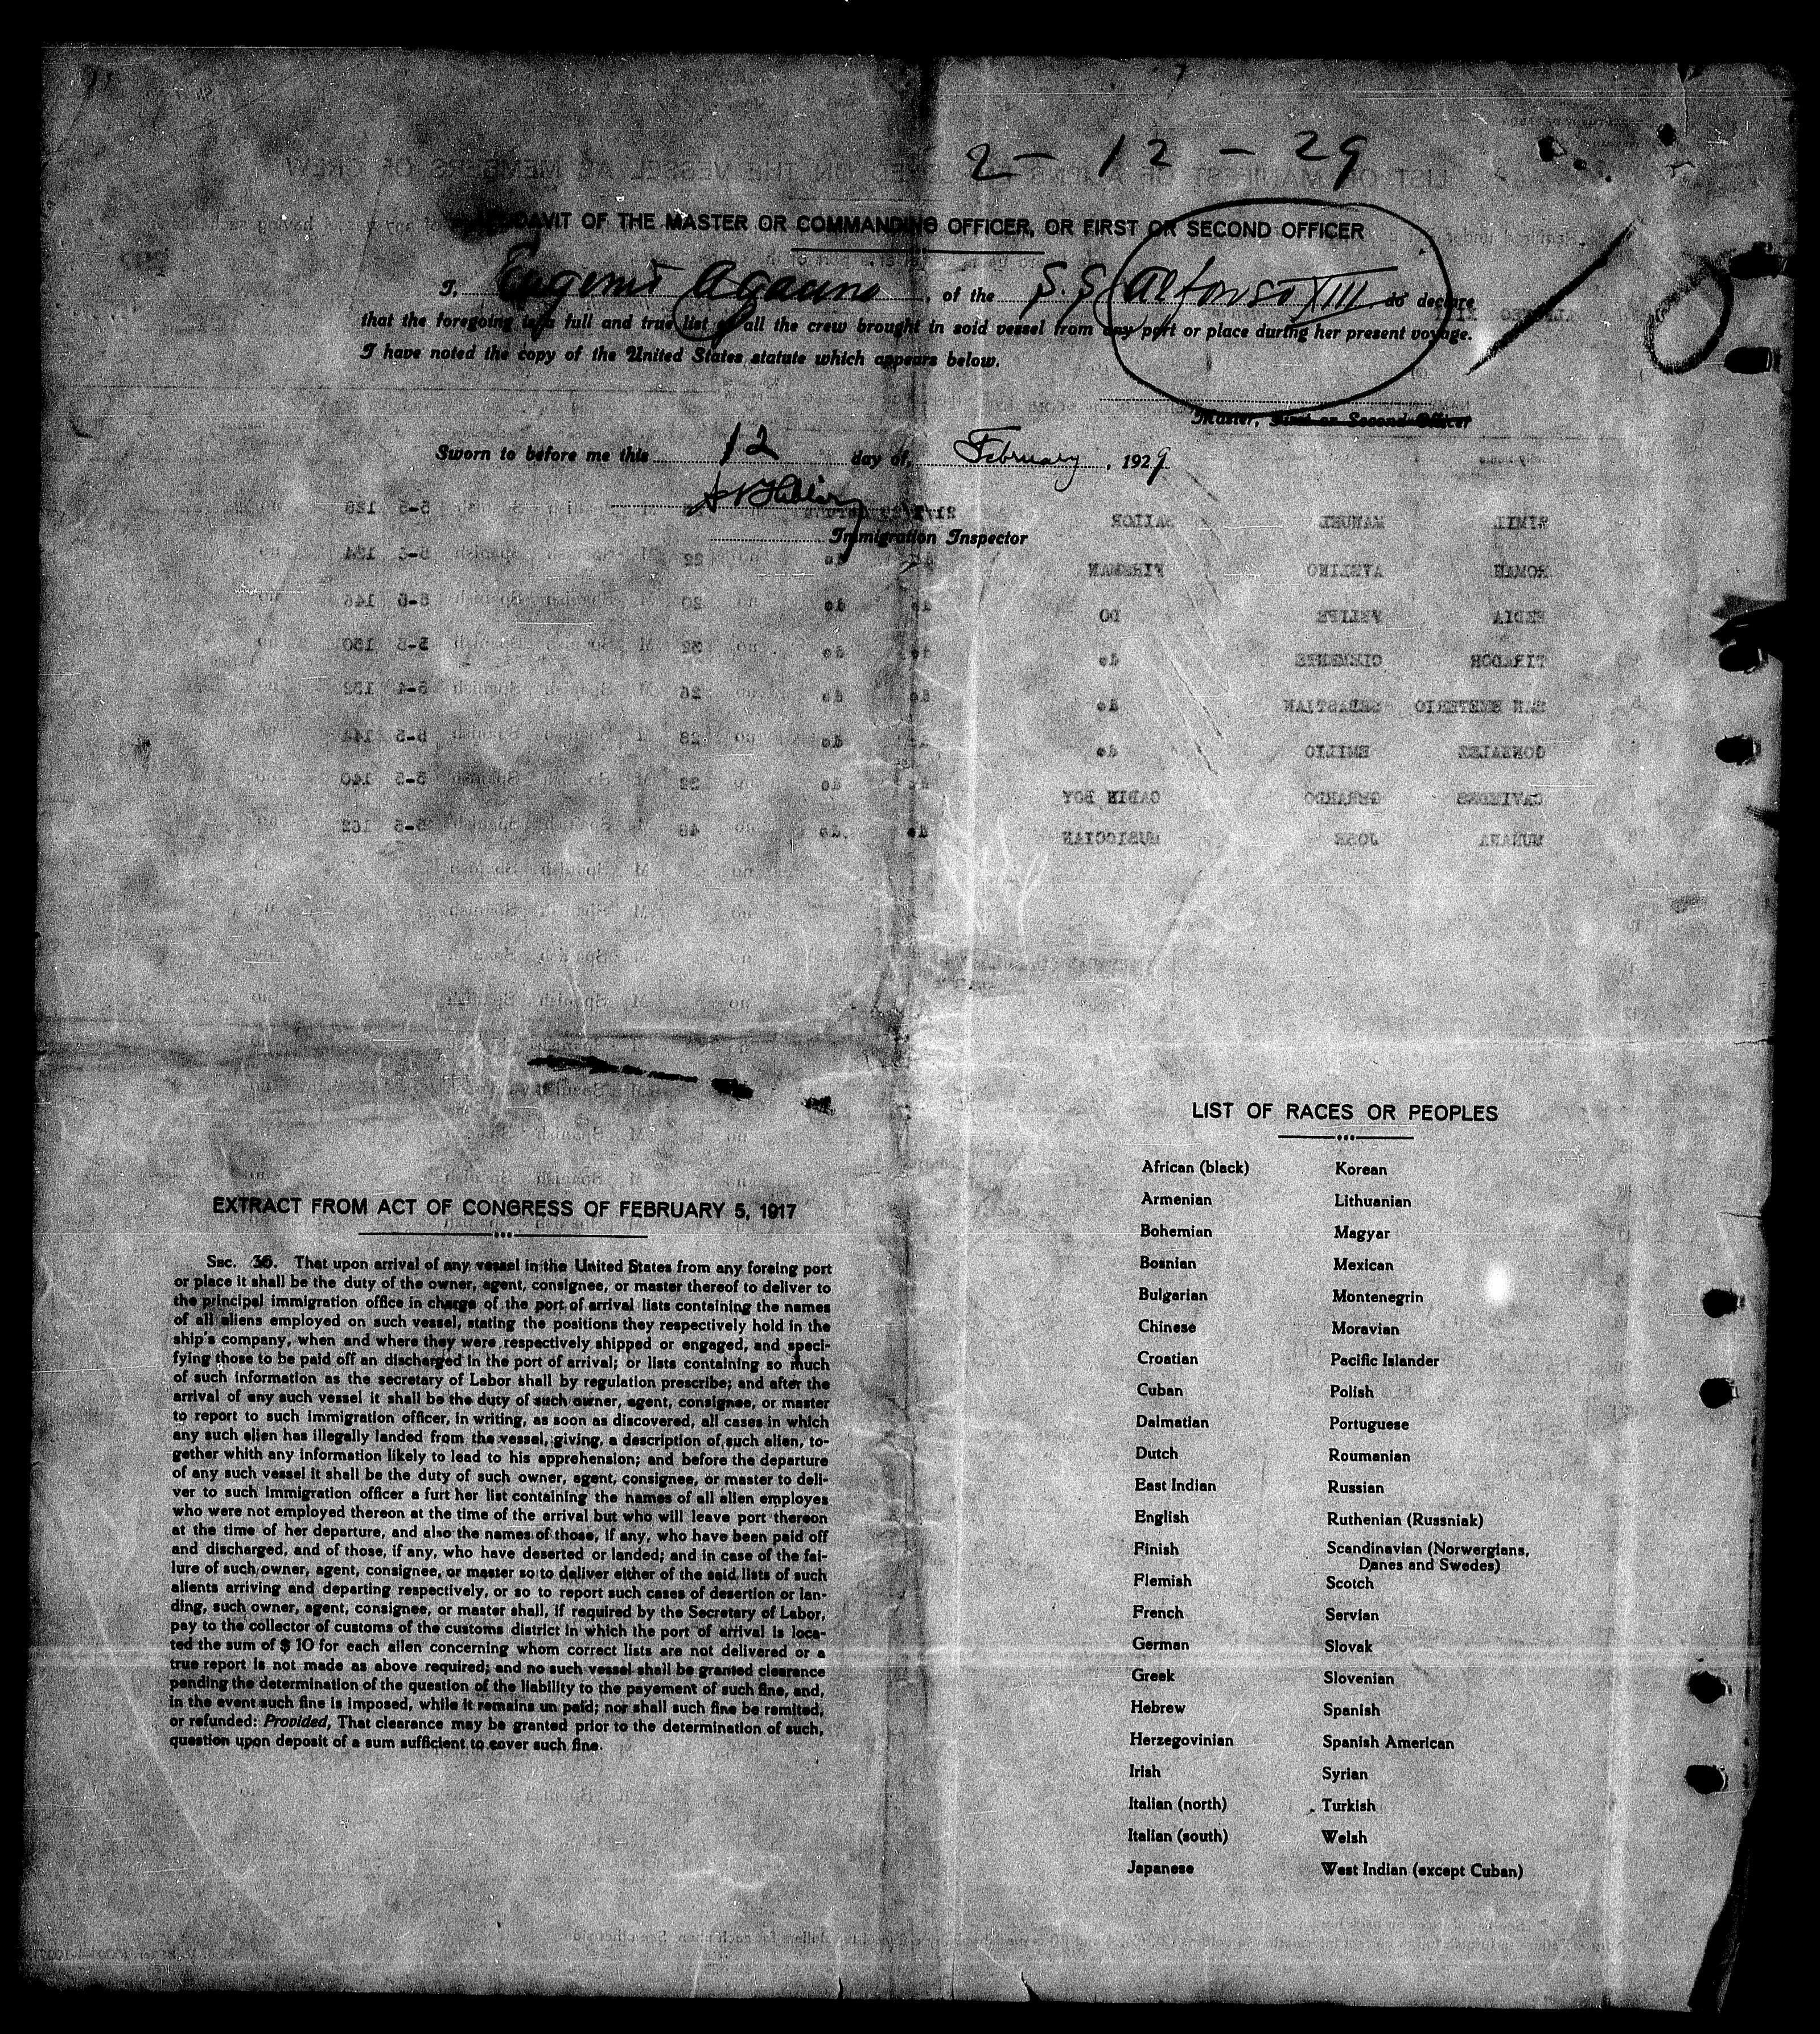 2 - 12 - 29
AFFIDAVIT OF THE MASTER OR COMMANDING OFFICER, OR FIRST OR SECOND OFFICER
I, Eugenio Agacino, of the S.S. Alfonso XIII do declare
that the foregoing is a full and true list of all the crew brought in said vessel from any port or place during her present voyage.
I have noted the copy of the United States statute which appears below.
Master, First or Second Officer
Sworn to before me this 12 day of, February, 1929
Immigration Inspector
RIMIL MANUEL SAILOR
ROMAN AVELINO FIREMAN do do no 22 M Spanish Spanish 5-5 134 no
FELIPE DO do do no 20 M Spanish Spanish 5-5 146 no
TIRADOR do do do no 32 M Spanish Spanish 5-5 150 no
SAN EMETERIO SEBASTIAN do do do no 26 M Spanish Spanish 5-4 132 no
GONZALEZ EMILIO do do do no 28 M Spanish Spanish 5-5 144
CAVIEDES GERARDO CABIN BOY do do no 32 M Spanish Spanish 5-5 140
MUNANA JOSE MUSICCIAN do do no 48 M Spanish Spanish 5-5 162 no
EXTRACT FROM ACT OF CONGRESS OF FEBRUARY 5, 1917
SEC. 36. That upon arrival of any vessel in the United States from any foreing port
or place it shall be the duty of the owner, agent, consignee, or master thereof to deliver to
the principal immigration office in charge of the port of arrival lists containing the names
of all aliens employed on such vessel, stating the positions they respectively hold in the
ship's company, when and where they were respectively shipped or engaged, and speci-
fying those to be paid off an discharged in the port of arrival; or lists containing so much
of such information as the secretary of Labor shall by regulation prescribe; and after the
arrival of any such vessel it shall be the duty of such owner, agent, consignee, or master
to report to such immigration officer, in writing, as soon as discovered, all cases in which
any such alien has illegally landed from the vessel, giving, a description of such alien, to-
gether whith any information likely to lead to his apprehension; and before the departure
of any such vessel it shall be the duty of such owner, agent, consignee, or master to deli-
ver to such immigration officer a furt her list containing the names of all alien employes
who were not employed thereon at the time of the arrival but who will leave port thereon
at the time of her departure, and also the names of those, if any, who have been paid off
and discharged, and of those, if any, who have deserted or landed; and in case of the fai-
lure of such owner, agent, consignee, or master so to deliver either of the said lists of such
alients arriving and departing respectively, or so to report such cases of desertion or lan-
ding, such owner, agent, consignee, or master shall, if required by the Secretary of Labor,
pay to the collector of customs of the customs district in which the port of arrival is loca-
ted the sum of $ 10 for each alien concerning whom correct lists are not delivered or a
true report is not made as above required; and no such vessel shall be granted clearance
pending the determination of the question of the liability to the payement of such fine, and,
in the event such fine is imposed, while it remains un paid; nor shall such fine be remited,
or refunded: Provided, That clearance may be granted prior to the determination of such,
question upon deposit of a sum sufficient to cover such fine.
LIST OF RACES OR PEOPLES
African (black) Korean
Armenian Lithuanian
Bohemian Magyar
Bosnian Mexican
Bulgarian Montenegrin
Chinese Moravian
Croatian Pacific Islander
Cuban Polish
Dalmatian Portuguese
Dutch Roumanian
East Indian Russian
English Ruthenian (Russniak)
Finish Scandinavian (Norwergians,
Danes and Swedes)
Flemish Scotch
French Servian
German Slovak
Greek Slovenian
Hebrew Spanish
Herzegovinian Spanish American
Irish Syrian
Italian (north) Turkish
Italian (south) Welsh
Japanese West Indian (except Cuban)